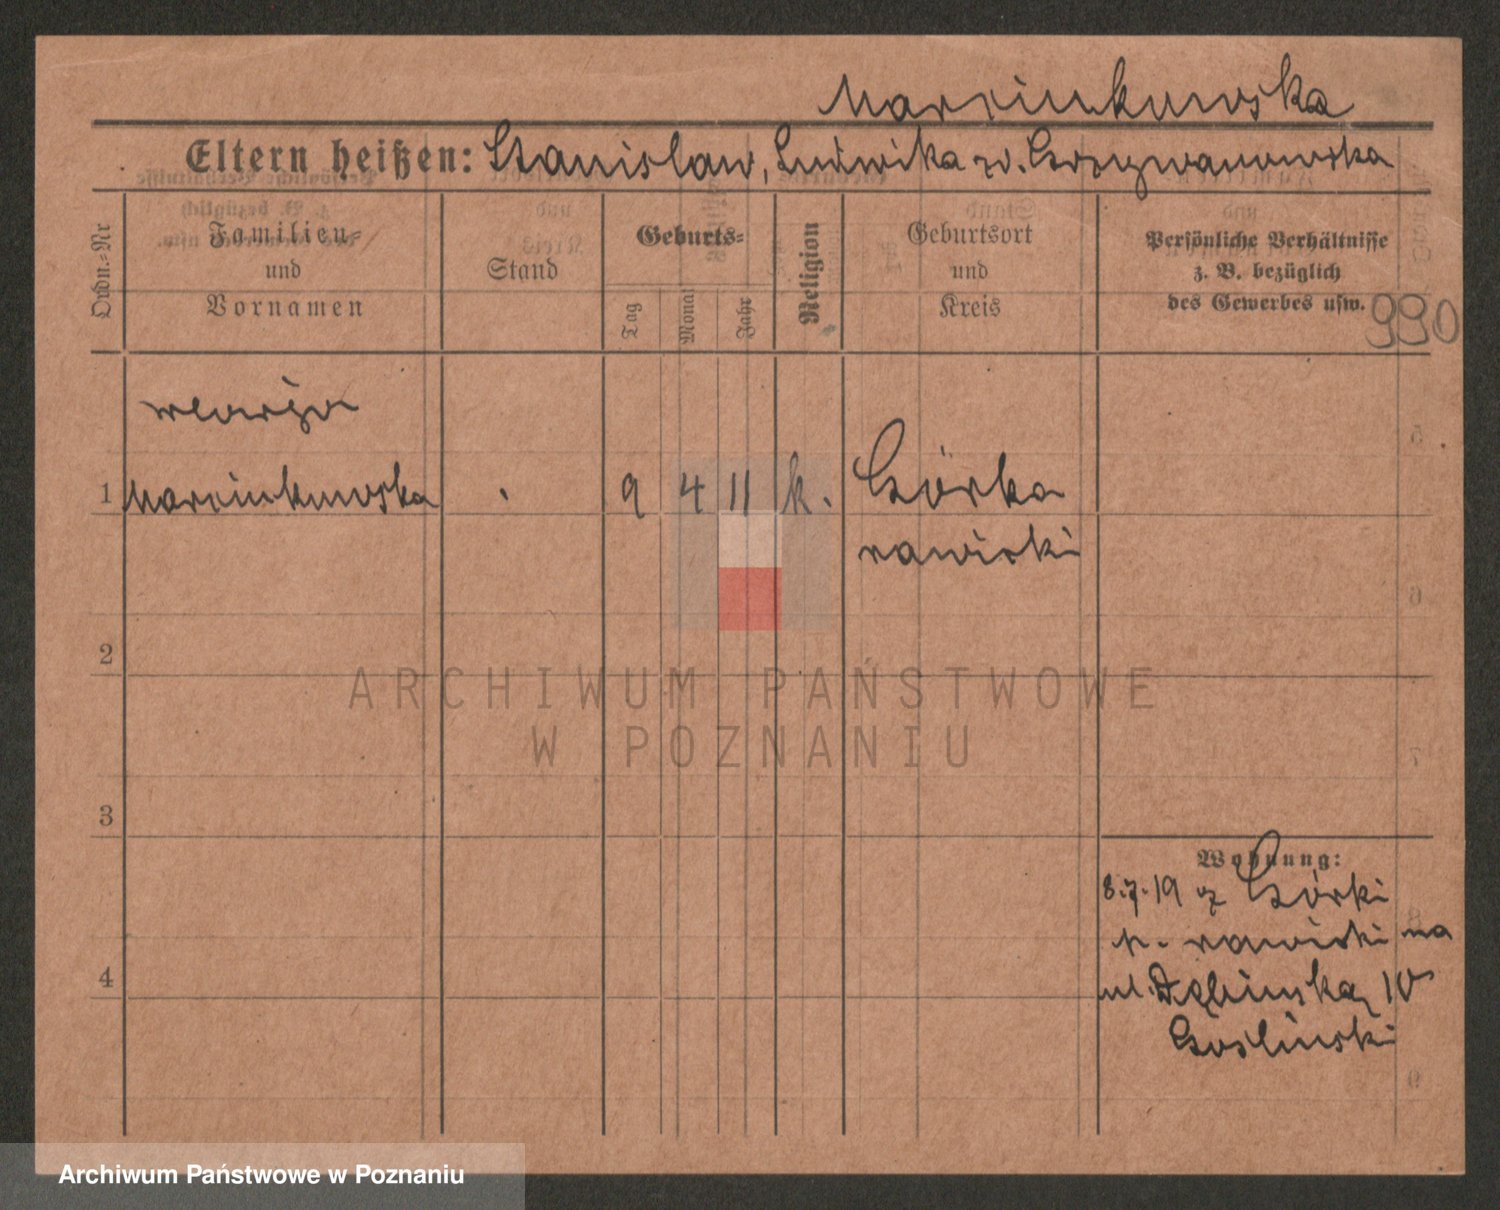 Marcinkowska
Eltern heißen: Stanisław, Ludwika zd. Grzywanowska
Ordn.-Nr
Familien- und Vornamen
Stand
Geburts-
Tag
Monat
Jahr
Religion
Geburtsort und Kreis
Persönliche Verhältnisse
z. B. bezüglich
des Gewerbes usw.
990
Marja
1 Marcinkowska 9 4 11 k. Górka
rawicki
2
3
4
Wohnung:
8.7.19 z Górki
p. rawicki na
ul. Dębińską 10
Gośliński
ARCHIWUM PAŃSTWOWE
W POZNANIU
Archiwum Państwowe w Poznaniu